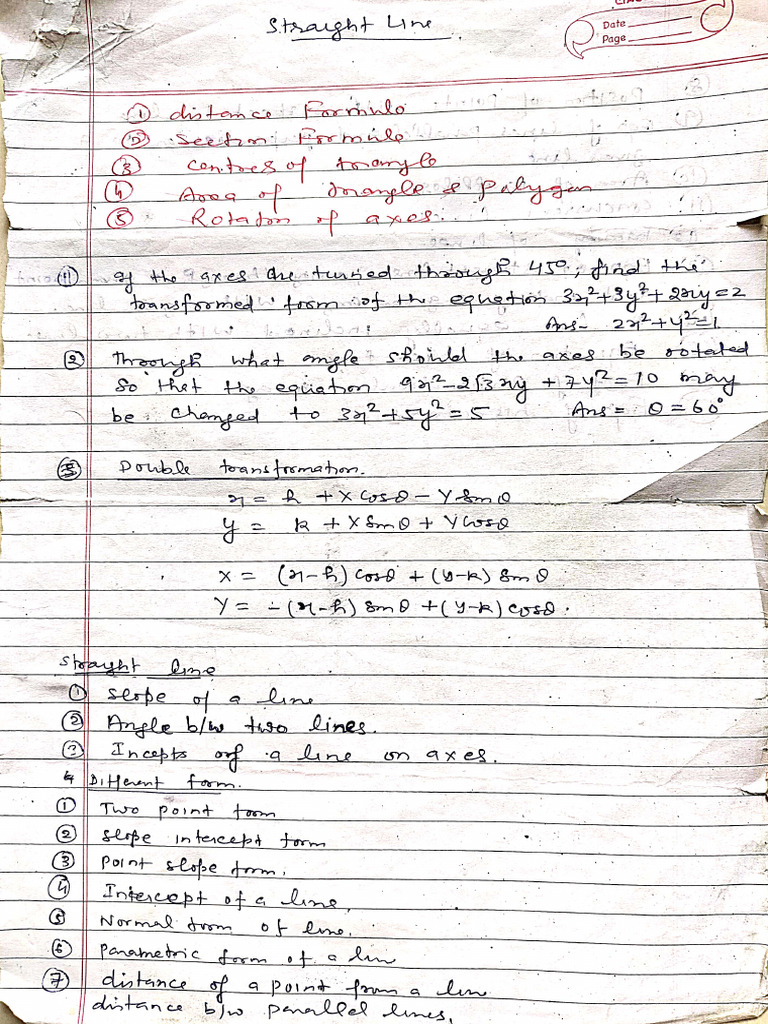 Straight Line
Date
Page
① distance Formulo
② Section Formule
③ centres of triangle
④ Area of triangle & Polygon
⑤ Rotation of axes.
(1) If the axes are turned through 45°, find the
transformed form of the equation 3x²+3y²+2xy=2
Ans- 2x²+y²=1
② Through what angle should the axes be rotated
so that the equation 9x²-2√3xy+7y²=10 may
be changed to 3x²+5y²=5 Ans= θ=60°
③ Double transformation.
x = h + X cosθ - Y sinθ
y = k + X sinθ + Y cosθ
X = (x-h) cosθ + (y-k) sinθ
Y = -(x-h) sinθ + (y-k) cosθ.
Straight line
① slope of a line
② Angle b/w two lines.
③ Incepts of a line on axes.
4 Different form.
① Two point form
② slope intercept form
③ Point slope form.
④ Intercept of a line,
⑤ Normal form of line.
⑥ Parametric form of a lin
⑦ distance of a point from a line
distance b/w parallel lines,